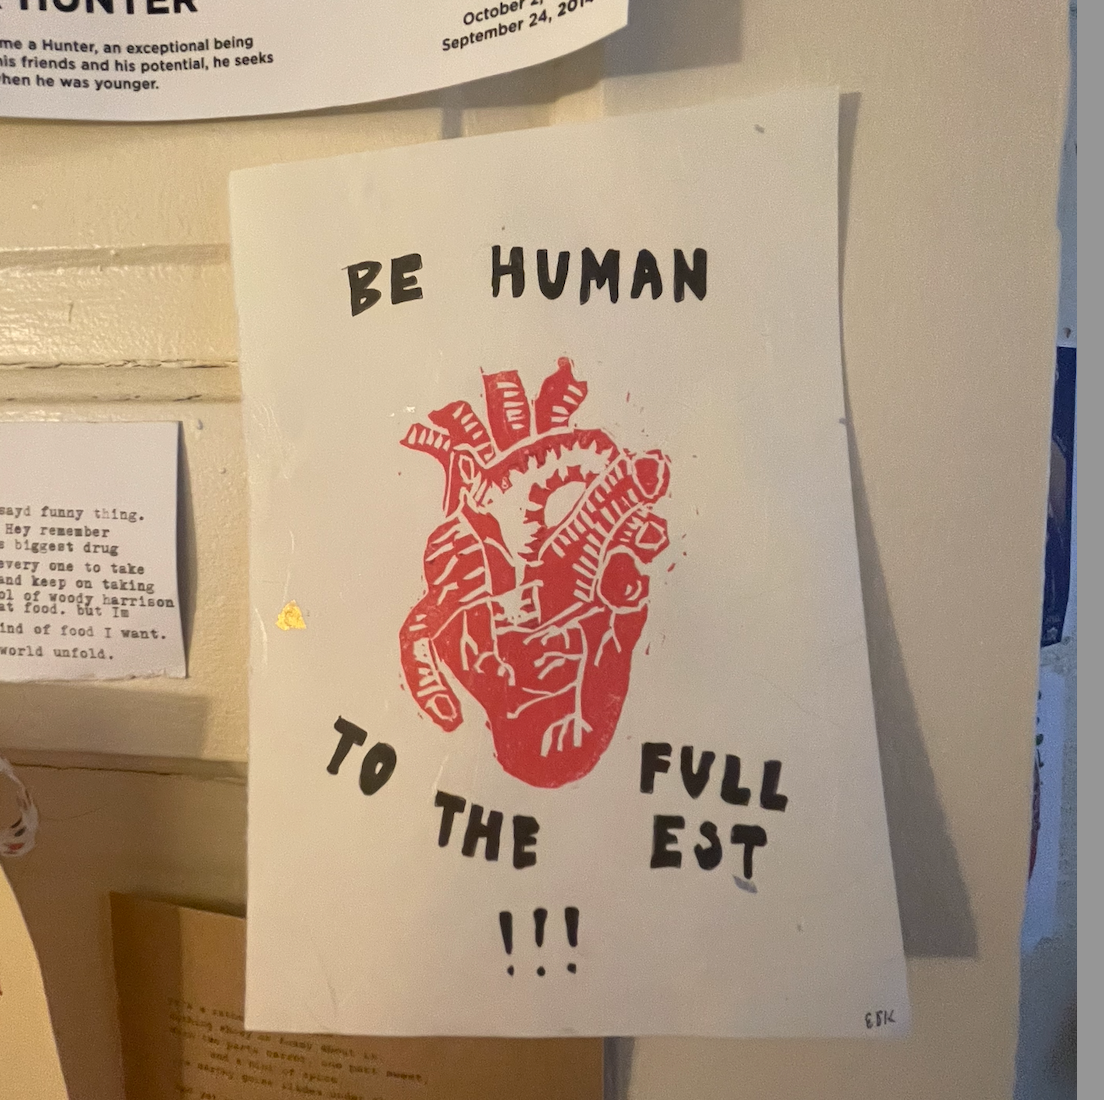 HUNTER
October 2,
September 24, 2014
me a Hunter, an exceptional being
his friends and his potential, he seeks
when he was younger.
BE HUMAN
TO THE FULL
EST
!!!
EBK
sayd funny thing.
Hey remember
s biggest drug
every one to take
and keep on taking
ol of woody harrison
at food. but Im
ind of food I want.
world unfold.
about
parts carrot, one part sweet,
and a hint of spice